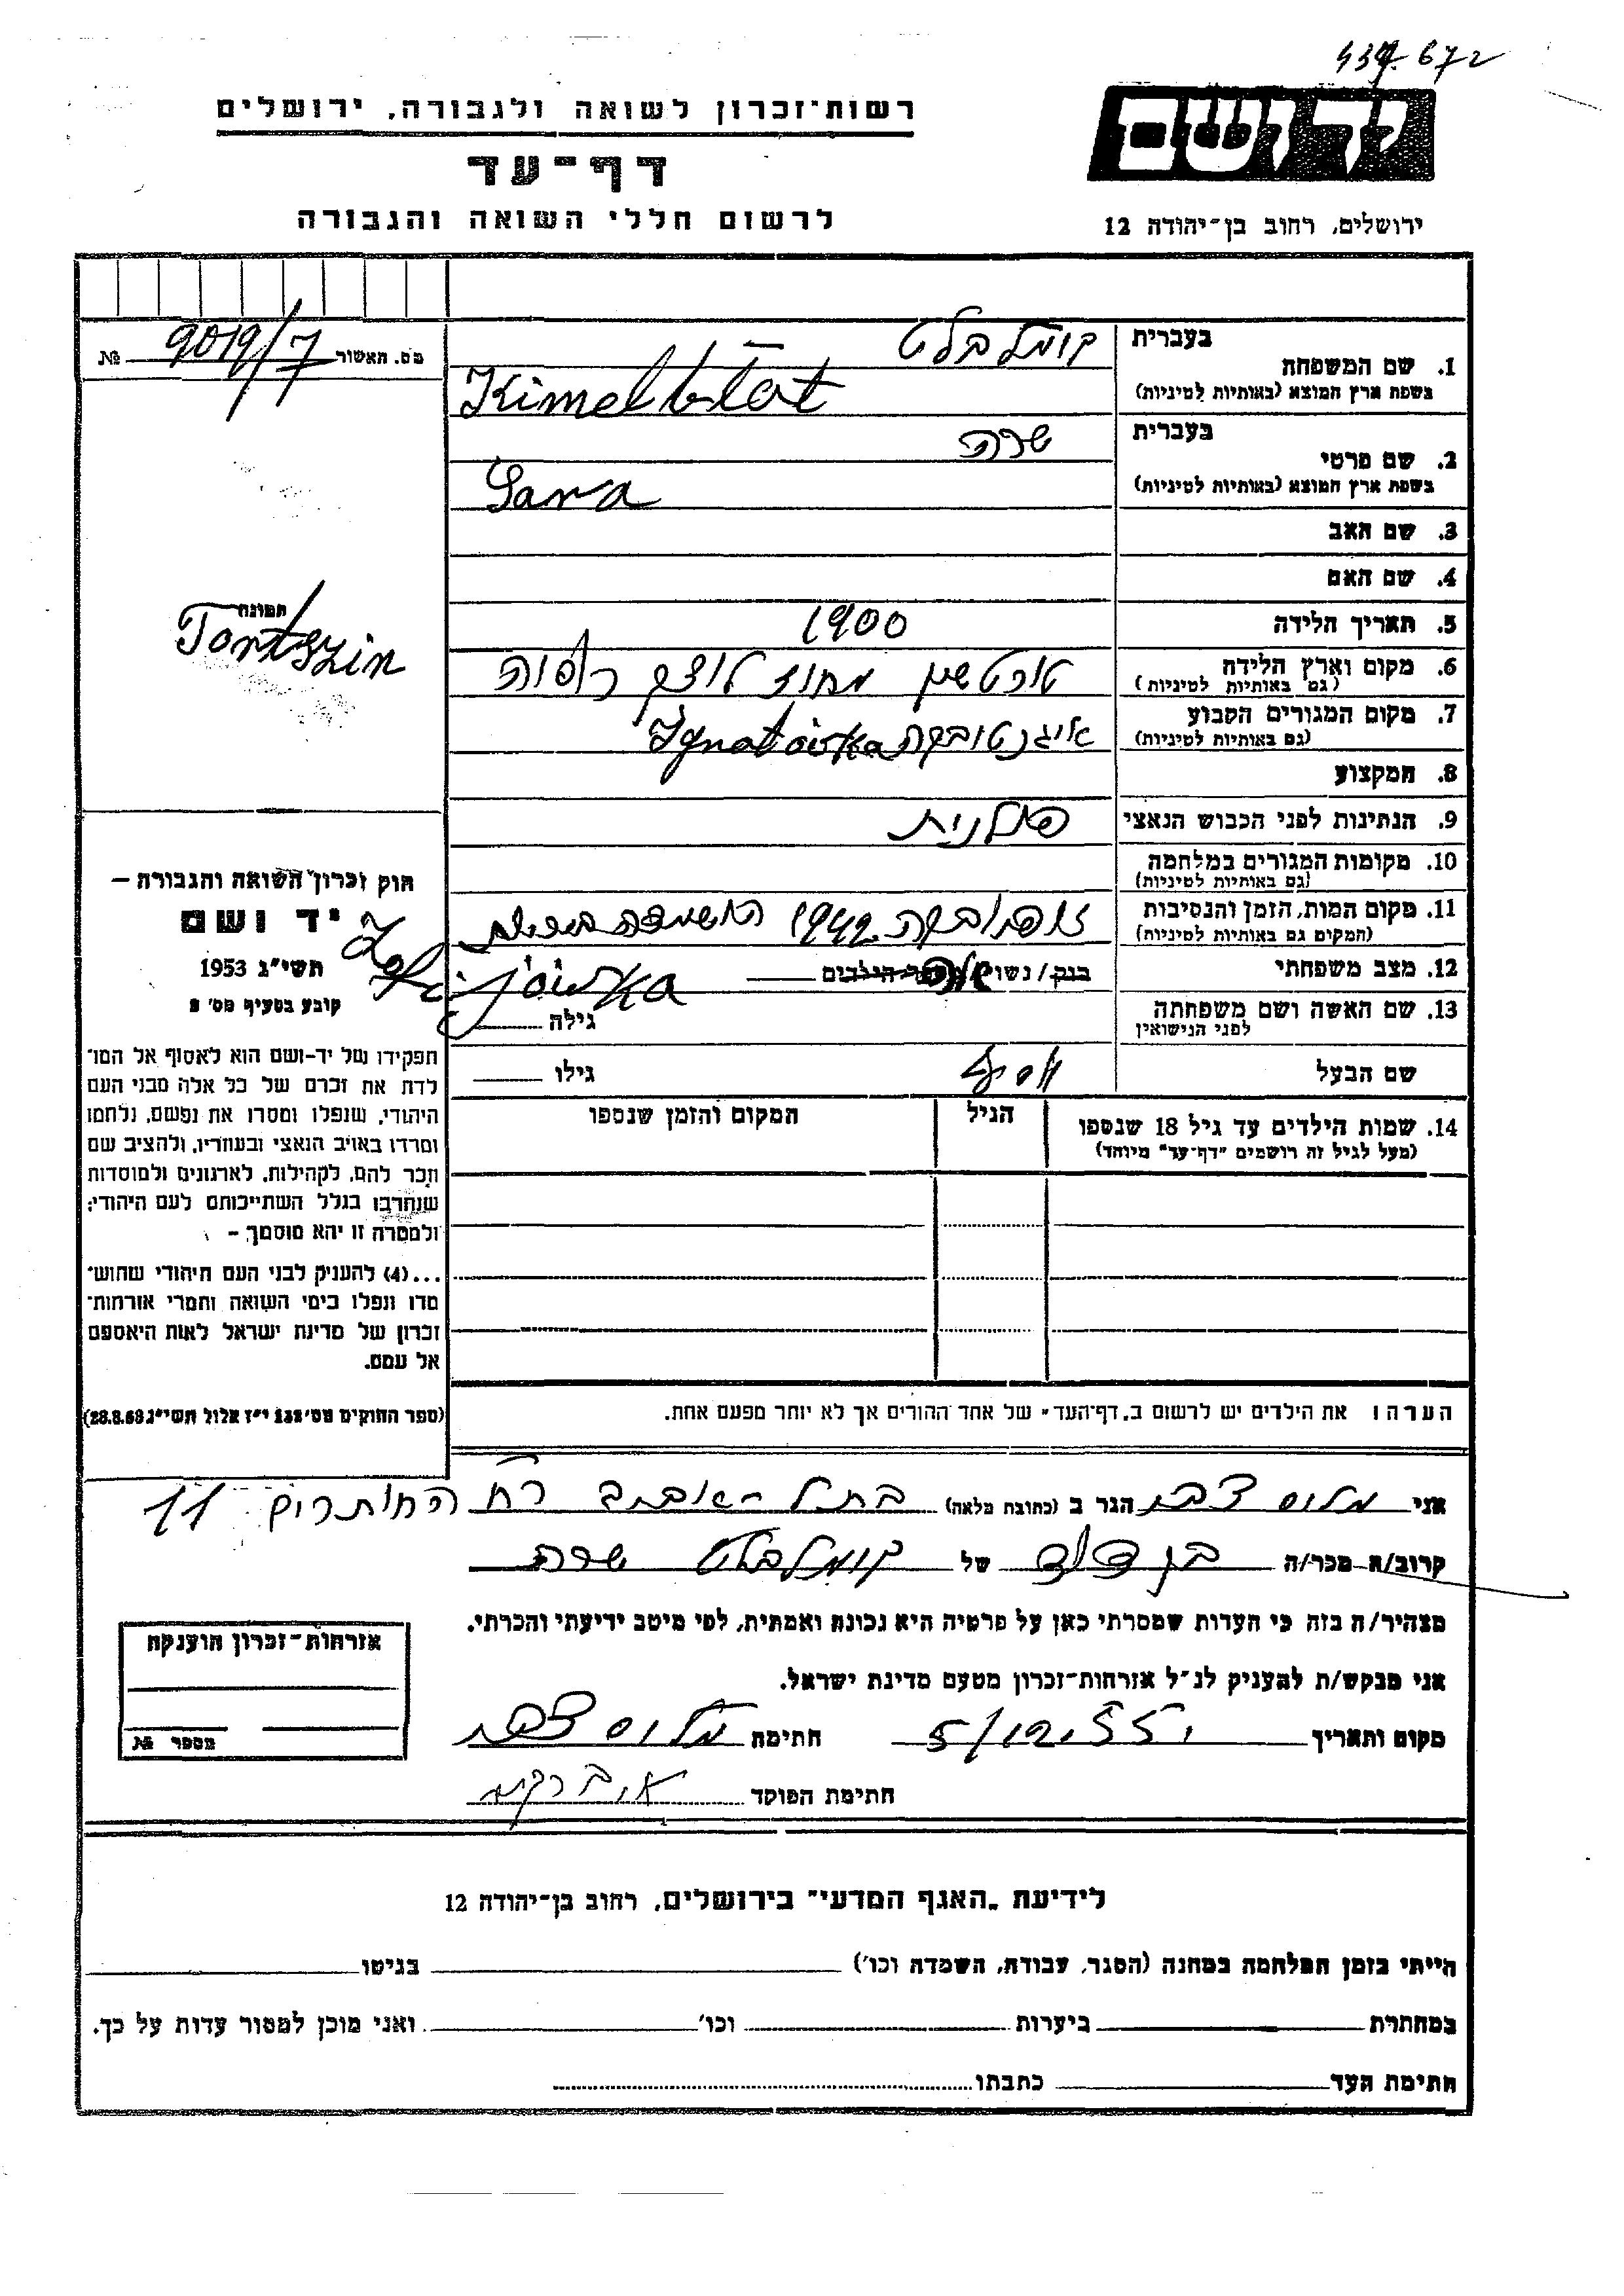 434.672
יד ושם
רשות־זכרון לשואה ולגבורה, ירושלים
דף־עד
לרשום חללי השואה והגבורה
ירושלים, רחוב בן־יהודה 12
מס. האשור 9019/7 №
בעברית קומלבלט
1. שם המשפחה
בשפת ארץ המוצא (באותיות לטיניות) Kimelblat
בעברית שרה
2. שם פרטי
בשפת ארץ המוצא (באותיות לטיניות) Sara
3. שם האב
4. שם האם
תמונה
Tortszin
5. תאריך הלידה 1900
6. מקום וארץ הלידה טורטשין מחוז לוצק
(גם באותיות לטיניות)
7. מקום המגורים הקבוע איגנטובקה Ignatówka
(גם באותיות לטיניות)
8. המקצוע
9. הנתינות לפני הכבוש הנאצי פולנית
10. מקומות המגורים במלחמה
(גם באותיות לטיניות)
11. מקום המות, הזמן והנסיבות זופיובקה 1942 האשמדה
(המקום גם באותיות לטיניות)
Zofijówka
12. מצב משפחתי רווק/ נשוי מספר הילדים
13. שם האשה ושם משפחתה גילה
לפני הנישואין
שם הבעל גילו
14. שמות הילדים עד גיל 18 שנספו הגיל המקום והזמן שנספו
(מעל לגיל זה רושמים "דף־עד" מיוחד)
חוק זכרון השואה והגבורה –
יד ושם
תשי"ג 1953
קובע בסעיף מס' 2
תפקידו של יד-ושם הוא לאסוף אל המו־
לדת את זכרם של כל אלה מבני העם
היהודי, שנפלו ומסרו את נפשם, נלחמו
ומרדו באויב הנאצי ובעוזריו, ולהציב שם
וזכר להם, לקהילות, לארגונים ולמוסדות
שנחרבו בגלל השתייכותם לעם היהודי;
ולמטרה זו יהא מוסמך –
...(4) להעניק לבני העם היהודי שהוש־
מדו ונפלו בימי השואה והמרי אזרחות־
זכרון של מדינת ישראל לאות היאספם
אל עמם.
(ספר החוקים מס' 132 י"ז אלול תשי"ג 28.8.53)
הערה: את הילדים יש לרשום ב„דף־העד" של אחד ההורים אך לא יותר מפעם אחת.
אני מלוס צבי הגר ב (כתובת מלאה) בתל-אביב רח החותרים 11
קרוב/ה מכר/ה בן דוד של קומלבלט שרה
מצהיר/ה בזה כי העדות שמסרתי כאן על פרטיה היא נכונה ואמתית, לפי מיטב ידיעתי והכרתי.
אני מבקש/ת להעניק לנ"ל אזרחות־זכרון מטעם מדינת ישראל.
מקום ותאריך 5/12.55 חתימה מלוס צבי
חתימת הפוקד
אזרחות־זכרון הוענקה
מספר №
לידיעת „האגף המדעי" בירושלים, רחוב בן־יהודה 12
הייתי בזמן המלחמה במחנה (הסגר, עבודה, השמדה וכו') בגיטו
במחתרת ביערות וכו' ואני מוכן למסור עדות על כך.
חתימת העד כתבתו